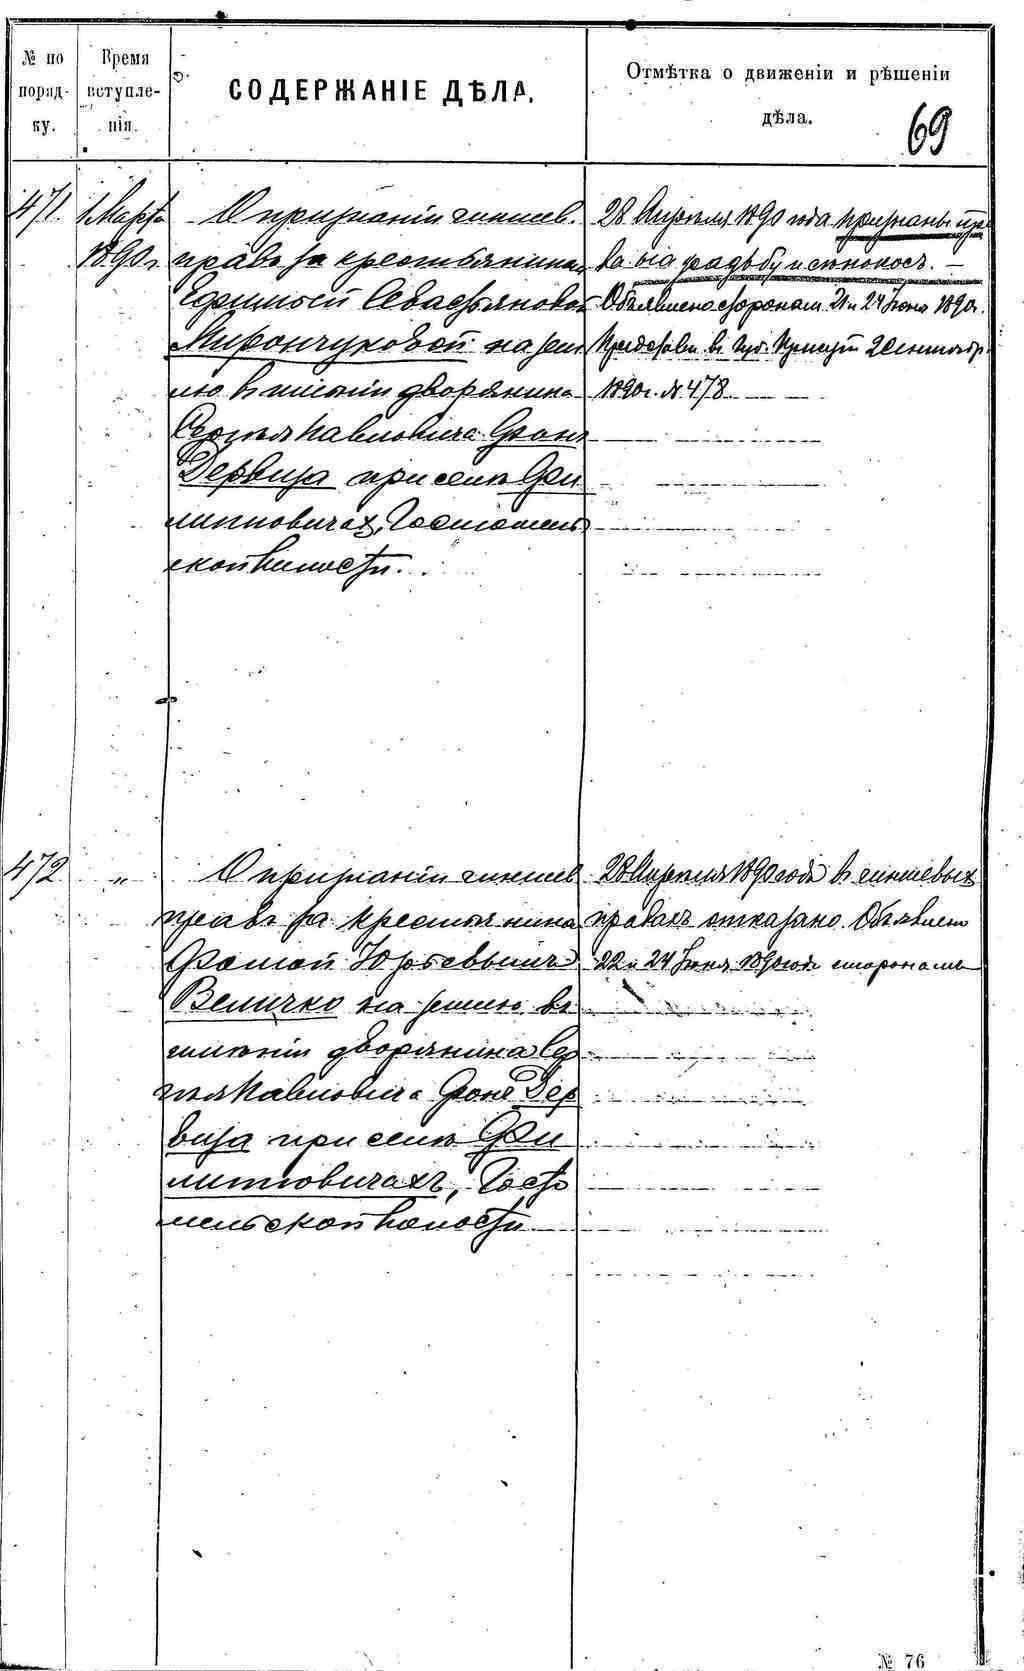 № по
поряд-
ку.
Время
вступле-
нія.
СОДЕРЖАНІЕ ДѢЛА.
Отмѣтка о движеніи и рѣшеніи
дѣла.
69
471.
1 Марта
1890 г.
О признаніи чиншев.
правъ за крестьянина
Севастьяновой
Мирончуковой на зем
лю въ имѣніи дворянина
Сергѣя Павловича Фонъ
Дервиза при селѣ Фи
липповичахъ,
ской волости.
28 Апрѣля 1890 года признаны пра
ва на усадьбу и сѣнокосъ. —
Объявлено сторонам 21 и 24 Іюня 1890 г.
въ Губ. 20 сентябр.
1890 г. № 478
472
"
О признаніи чиншев
правъ за крестьянина
Фомой Юрьевымъ
Величко на землю въ
имѣніи дворянина Сер
гѣя Павловича Фонъ Дер
виза при селѣ Фи
липповичахъ,
мельской волости
28 Апрѣля 1890 года въ чиншевых
правахъ отказано. Объявлено
22 и 24 Іюня 1890 года сторонамъ
№ 76